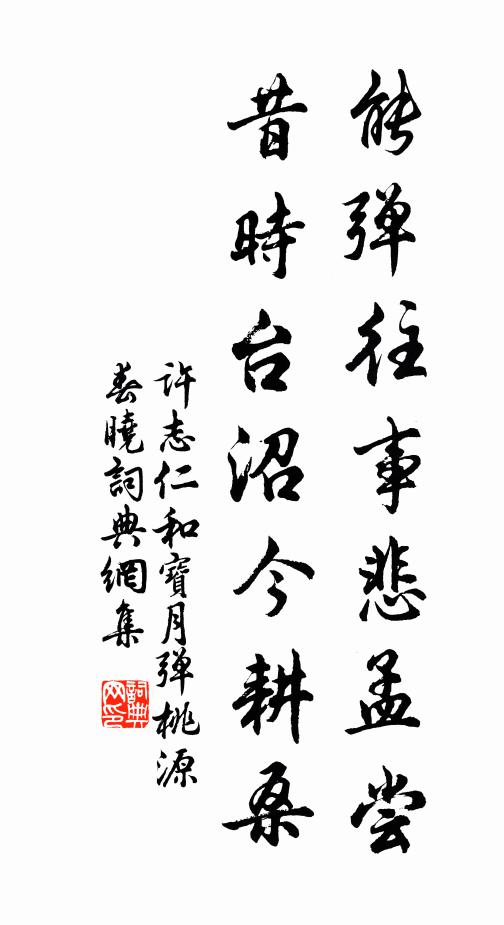 能弹往事悲孟尝
昔時台沼今耕桑
许志仁和寶月弹桃源
春曉詞典網集
詞典
网印